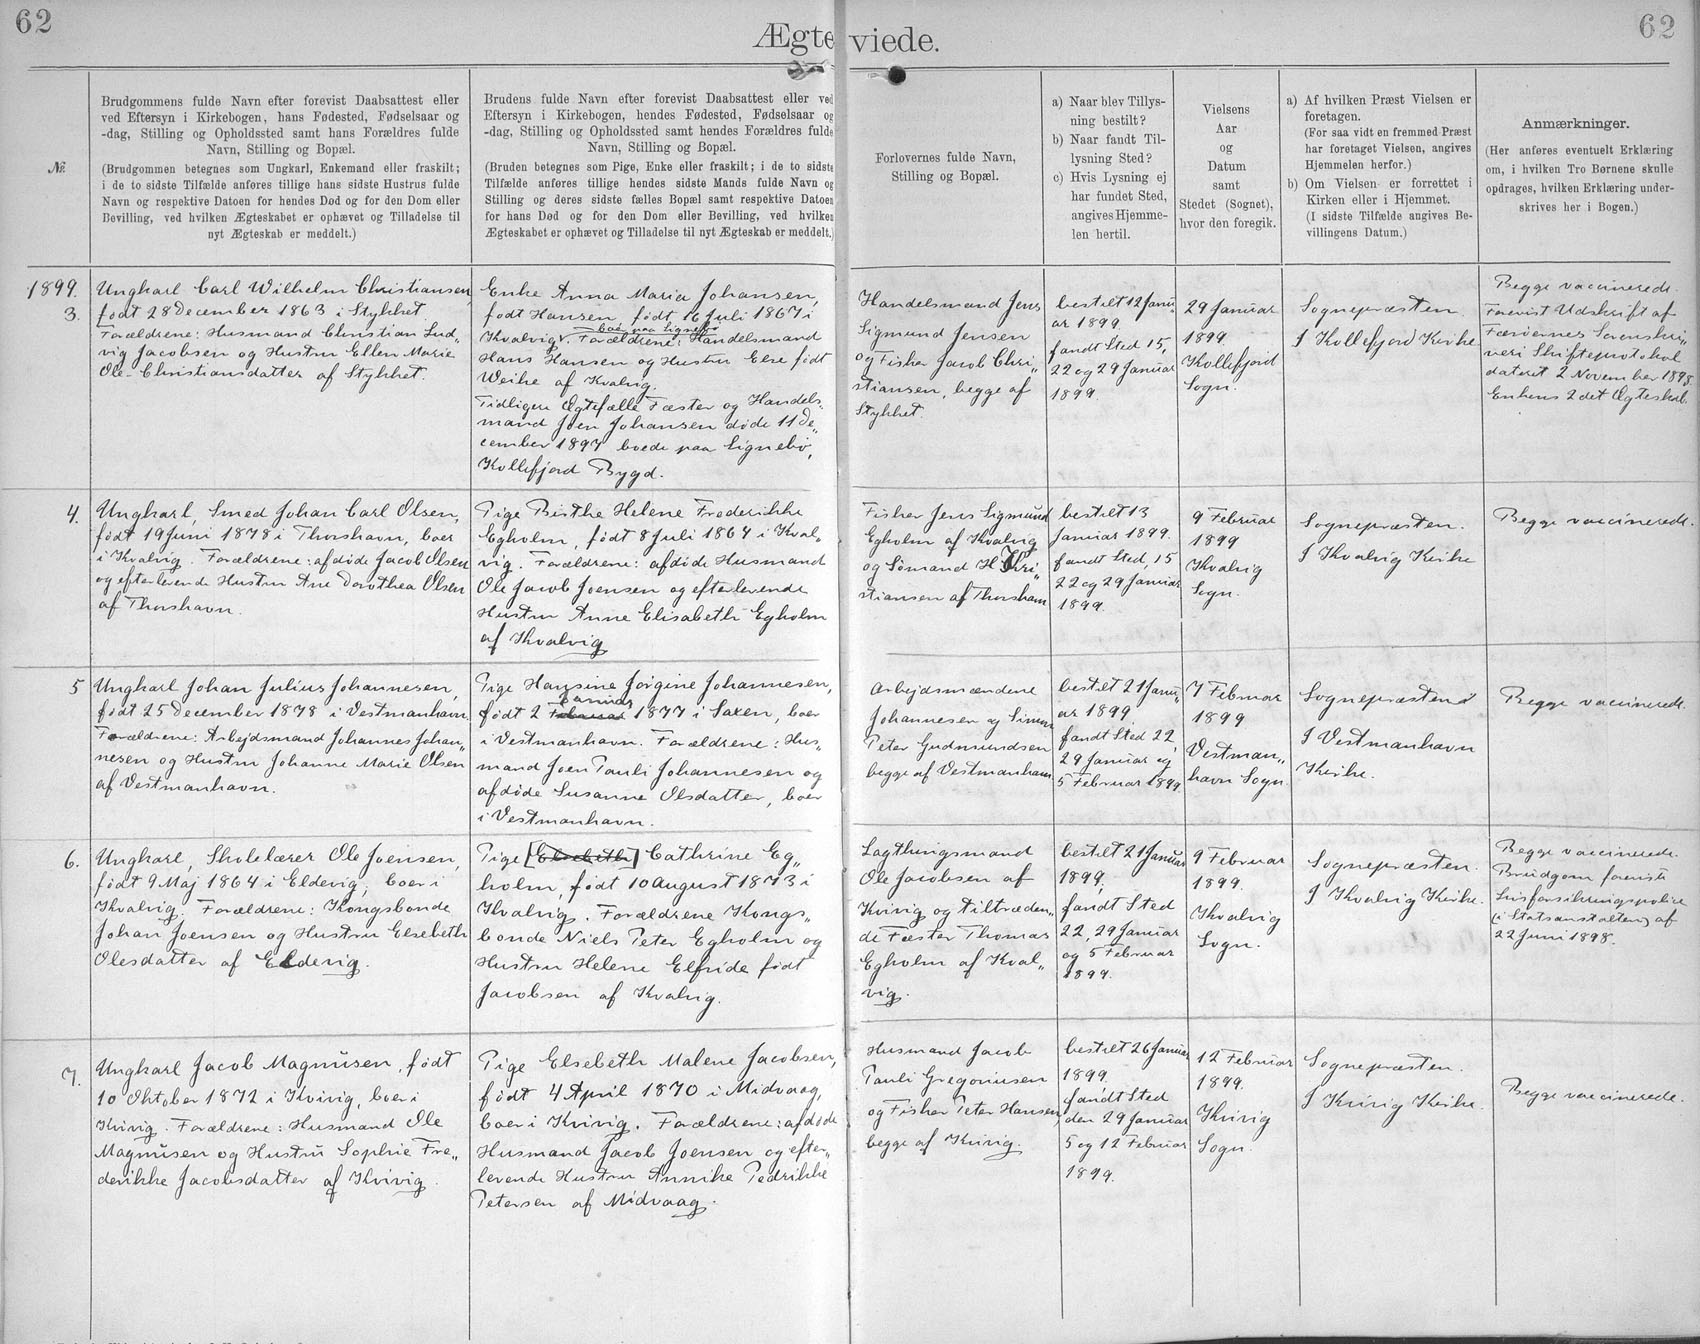 62
Ægteviede.
62
№
Brudgommens fulde Navn efter forevist Daabsattest eller
ved Eftersyn i Kirkebogen, hans Fødested, Fødselsaar og
-dag, Stilling og Opholdssted samt hans Forældres fulde
Navn, Stilling og Bopæl.
(Brudgommen betegnes som Ungkarl, Enkemand eller fraskilt;
i de to sidste Tilfælde anføres tillige hans sidste Hustrus fulde
Navn og respektive Datoen for hendes Død og for den Dom eller
Bevilling, ved hvilken Ægteskabet er ophævet og Tilladelse til
nyt Ægteskab er meddelt.)
Brudens fulde Navn efter forevist Daabsattest eller ved
Eftersyn i Kirkebogen, hendes Fødested, Fødselsaar og
-dag, Stilling og Opholdssted samt hendes Forældres fulde
Navn, Stilling og Bopæl.
(Bruden betegnes som Pige, Enke eller fraskilt; i de to sidste
Tilfælde anføres tillige hendes sidste Mands fulde Navn og
Stilling og deres sidste fælles Bopæl samt respektive Datoen
for hans Død og for den Dom eller Bevilling, ved hvilken
Ægteskabet er ophævet og Tilladelse til nyt Ægteskab er meddelt.)
Forlovernes fulde Navn,
Stilling og Bopæl.
a) Naar blev Tillys-
ning bestilt?
b) Naar fandt Til-
lysning Sted?
c) Hvis Lysning ej
har fundet Sted,
angives Hjemme-
len hertil.
Vielsens
Aar
og
Datum
samt
Stedet (Sognet),
hvor den foregik.
a) Af hvilken Præst Vielsen er
foretagen.
(For saa vidt en fremmed Præst
har foretaget Vielsen, angives
Hjemmelen herfor.)
b) Om Vielsen er forrettet i
Kirken eller i Hjemmet.
(I sidste Tilfælde angives Be-
villingens Datum.)
Anmærkninger.
(Her anføres eventuelt Erklæring
om, i hvilken Tro Børnene skulle
opdrages, hvilken Erklæring under-
skrives her i Bogen.)
1899.
3.
Ungkarl Carl Wilhelm Christiansen
født 28 December 1863 i Stykket.
Forældrene: Husmand Christian Lud„
vig Jacobsen og Hustru Ellen Marie
Ole-Christiansdatter af Stykket.
Enke Anna Maria Johansen,
født Hansen, født 16 Juli 1867 i
Kvalvig. boe paa Signebø
Forældrene: Handelsmand
Hans Hansen og Hustru Else født
Weihe af Kvalvig.
Tidligere Ægtefælle Fæster og Handels„
mand Joen Johansen døde 11 De„
cember 1897 boede paa Signebø,
Kollefjord Bygd.
Handelsmand Jens
Sigmund Jensen
og Fisker Jacob Chri„
stiansen, begge af
Stykket.
bestilt 12 Janu„
ar 1899.
fandt Sted 15,
22 og 29 Januar
1899.
29 Januar
1899.
Kollefjord
Sogn.
Sognepræsten.
I Kollefjord Kirke
Begge vaccinerede.
Forevist Udskrift af
Færøernes Sorenskri„
veri Skifteprotokol
dateret 2 November 1898.
Enkens 2det Ægteskab.
4.
Ungkarl, Smed Johan Carl Olsen,
født 19 Juni 1878 i Thorshavn, boer
i Kvalvig. Forældrene: afdøde Jacob Olsen
og efterlevende Hustru Ane Dorothea Olsen
af Thorshavn.
Pige Birthe Helene Frederikke
Egholm, født 8 Juli 1864 i Kval„
vig. Forældrene: afdøde Husmand
Ole Jacob Joensen og efterlevende
Hustru Anne Elisabeth Egholm
af Kvalvig
Fisker Jens Sigmund
Egholm af Kvalvig
og Sømand H. Kri„
stiansen af Thorshavn
bestilt 13
Januar 1899.
fandt Sted, 15
22 og 29 Januar
1899.
9 Februar
1899
Kvalvig
Sogn.
Sognepræsten.
I Kvalvig Kirke
Begge vaccinerede.
5
Ungkarl Johan Julius Johannesen,
født 25 December 1878 i Vestmanhavn.
Forældrene: Arbejdsmand Johannes Johan„
nesen og Hustru Johanne Marie Olsen
af Vestmanhavn.
Pige Hansine Jørgine Johannesen,
Januar
født 2 Februar 1877 i Saxen, boer
i Vestmanhavn. Forældrene: Hus„
mand Joen Pauli Johannesen og
afdøde Susanne Olsdatter, boer
i Vestmanhavn.
Arbejdsmændene
Johannesen og Simun
Peter Gudmundsen
begge af Vestmanhavn
bestilt 21 Janu„
ar 1899
fandt Sted 22,
29 Januar og
5 Februar 1899
7 Februar
1899
Vestman„
havn Sogn
Sognepræsten
I Vestmanhavn
Kirke.
Begge vaccinerede.
6.
Ungkarl, Skolelærer Ole Joensen,
født 9 Maj 1864 i Eldevig, boer i
Kvalvig. Forældrene: Kongsbonde
Johan Joensen og Hustru Elsebeth
Olesdatter af Eldevig.
Pige [Elsebeth] Cathrine Eg„
holm, født 10 August 1873 i
Kvalvig. Forældrene Kongs„
bonde Niels Peter Egholm og
Hustru Helene Elfride født
Jacobsen af Kvalvig.
Lagthingsmand
Ole Jacobsen af
Kvivig og tiltræden„
de Fæster Thomas
Egholm af Kval„
vig.
bestilt 21 Januar
1899,
fandt Sted
22, 29 Januar
og 5 Februar
1899.
9 Februar
1899.
Kvalvig
Sogn.
Sognepræsten.
I Kvalvig Kirke.
Begge vaccinerede.
Brudgom foreviste
Livsforsikringspolice
(i Statsanstalten) af
22 Juni 1898.
7.
Ungkarl Jacob Magnusen, født
10 Oktober 1872 i Kvivig, boer i
Kvivig. Forældrene: Husmand Ole
Magnusen og Hustru Sophie Fre„
derikke Jacobsdatter af Kvivig.
Pige Elsebeth Malene Jacobsen,
født 4 April 1870 i Midvaag,
boer i Kvivig. Forældrene: afdøde
Husmand Jacob Joensen og efter„
levende Hustru Annike Pedrikke
Petersen af Midvaag.
Husmand Jacob
Pauli Gregoriusen
og Fisker Peter Hansen,
begge af Kvivig.
bestilt 26 Januar
1899.
fandt Sted
den 29 Januar
5 og 12 Februar
1899.
12 Februar
1899.
Kvivig
Sogn.
Sognepræsten.
I Kvivig Kirke.
Begge vaccinerede.